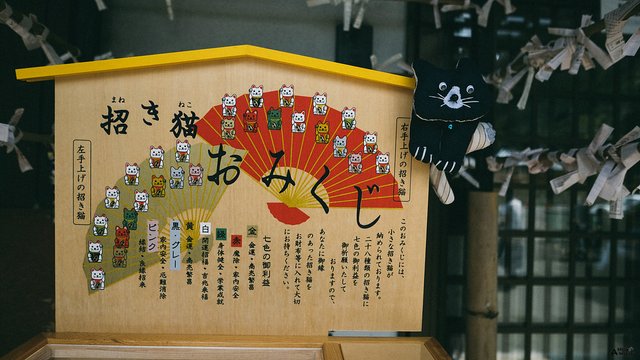 招き猫
まね
ねこ
おみくじ
右手上げの招き猫
左手上げの招き猫
このおみくじには、
小さな招き猫が
納められております。
二十八種類の招き猫に
七色の御利益を
御祈願いたして
おりますので、
あなたに御縁
のあった招き猫を
お財布等に入れて大切
にお持ちください。
七色の御利益
金 金運・商売繁昌
赤 魔除・家内安全
緑 身体健全・学業成就
白 開運招福・吉兆来福
黄 金運・商売繁昌
黒・グレー 家内安全・厄難消除
ピンク 縁結・良縁招来